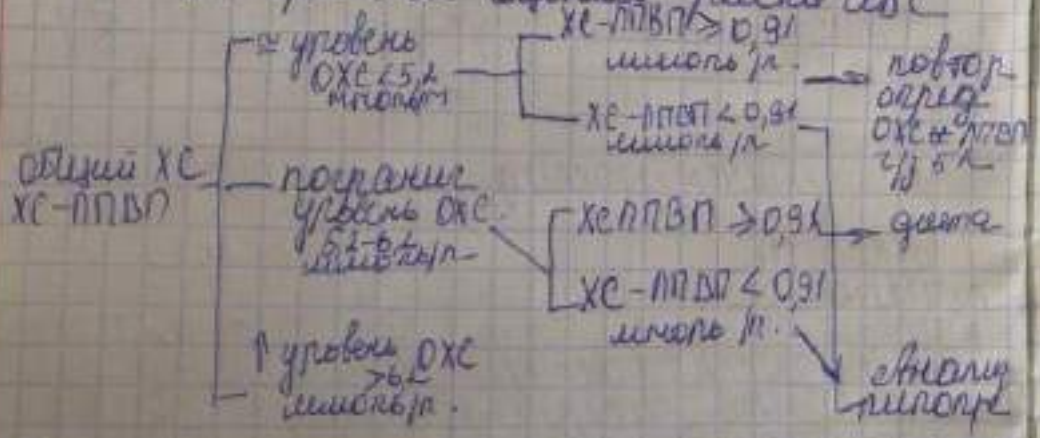 общий ХС
ХС-ЛПВП
≈ уровень
ОХС < 5,2
ммоль/л
ХС-ЛПВП ≥ 0,91
ммоль/л.
ХС-ЛПВП < 0,91
ммоль/л
повтор
опред
ОХС и ЛПВП
ч/з 5 л
погранич
уровень ОХС
5,2-6,2
ммоль/л
ХСЛПВП ≥ 0,91
диета
ХС-ЛПВП < 0,91
ммоль/л.
↑ уровень ОХС
>6,2
ммоль/л.
Анализ
липопр